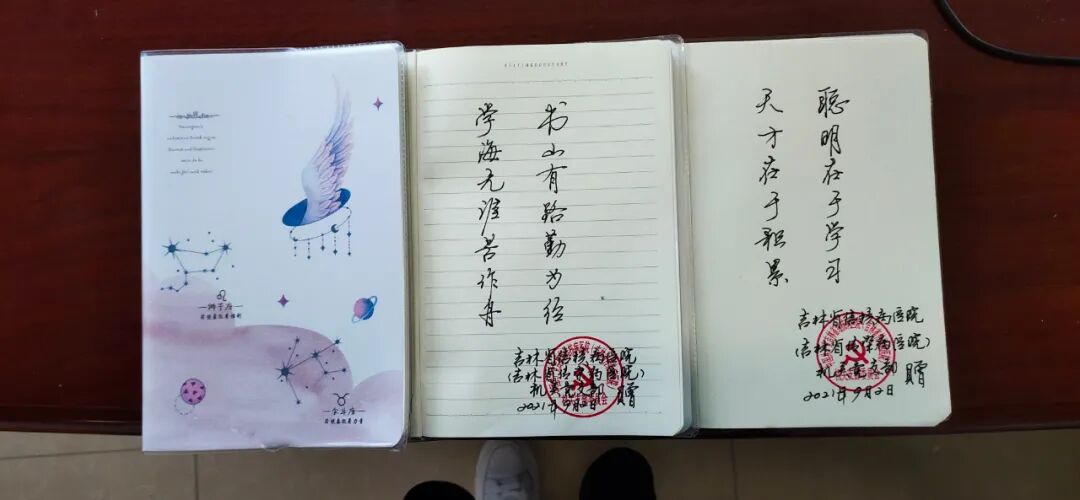 狮子座
金牛座
书山有路勤为径
学海无涯苦作舟
吉林省结核病医院
(吉林省传染病医院)
机关党支部 赠
2021年9月2日
聪明在于学习
天才在于积累
吉林省结核病医院
(吉林省传染病医院)
机关党支部 赠
2021年9月2日